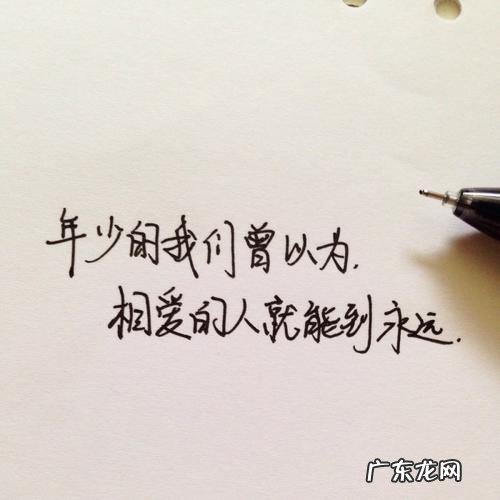 年少的我们曾以为.
相爱的人就能到永远.
广东龙网